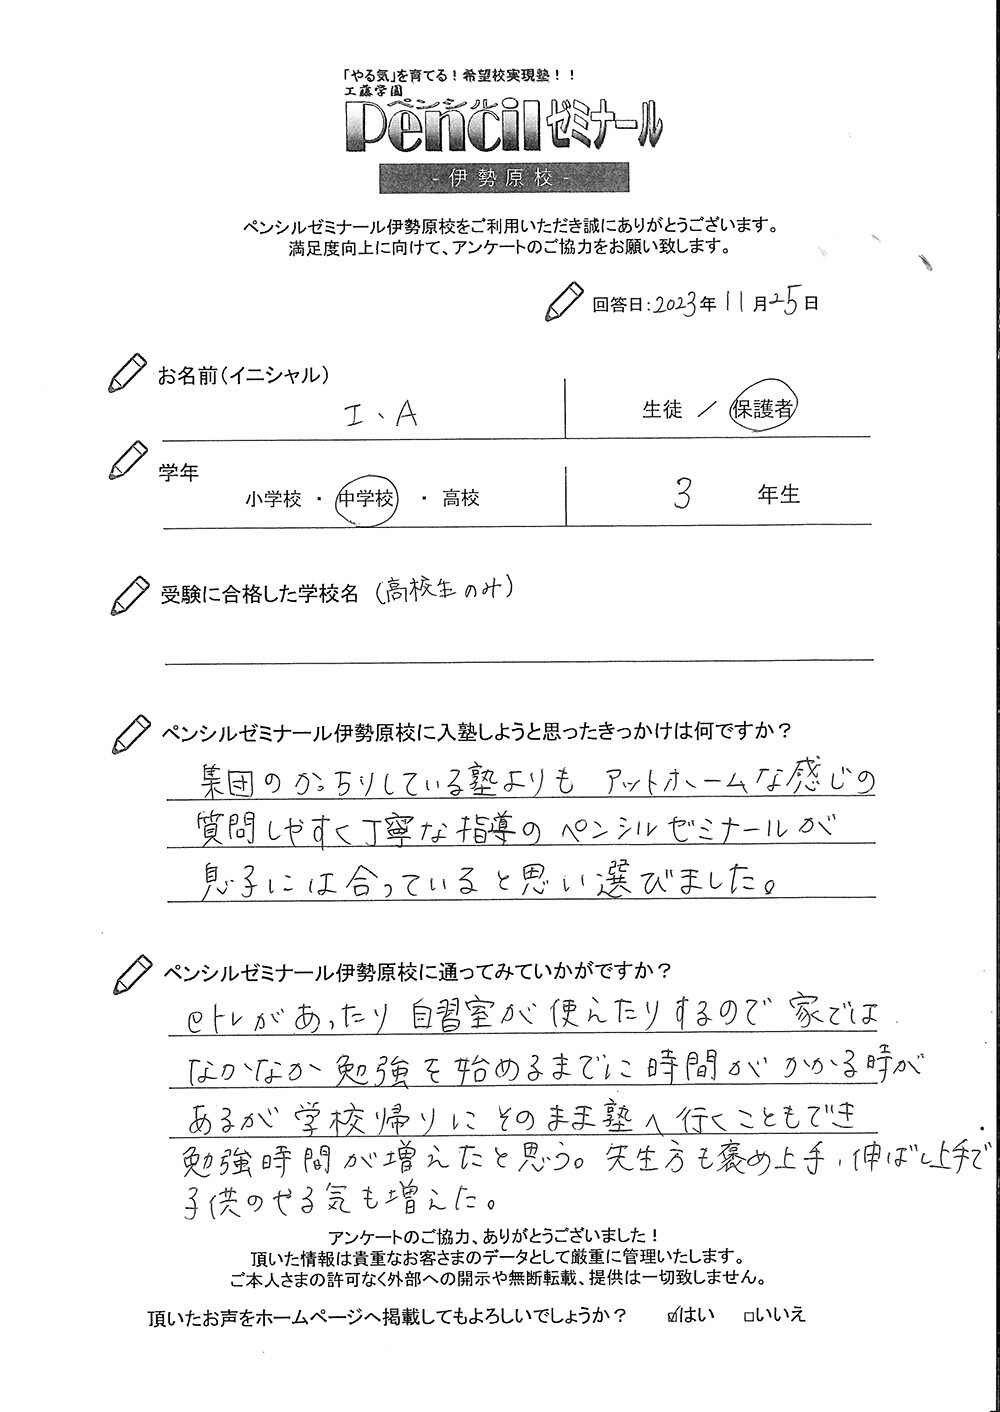 「やる気」を育てる！希望校実現塾！！
工藤学園
ペンシル
Pencilゼミナール
- 伊勢原校 -
ペンシルゼミナール伊勢原校をご利用いただき誠にありがとうございます。
満足度向上に向けて、アンケートのご協力をお願い致します。
回答日：2023年 11月25日
お名前（イニシャル）
I、A 生徒 ／ 保護者
学年
小学校 ・ 中学校 ・ 高校 3 年生
受験に合格した学校名 （高校生のみ）
ペンシルゼミナール伊勢原校に入塾しようと思ったきっかけは何ですか？
集団のかっちりしている塾よりも アットホームな感じの
質問しやすく丁寧な指導の ペンシルゼミナールが
息子には合っていると思い選びました。
ペンシルゼミナール伊勢原校に通ってみていかがですか？
eトレがあったり 自習室が使えたりするので 家では
なかなか勉強を始めるまでに時間がかかる時が
あるが 学校帰りにそのまま塾へ行くこともでき
勉強時間が増えたと思う。先生方も褒め上手、伸ばし上手で
子供のやる気も増えた。
アンケートのご協力、ありがとうございました！
頂いた情報は貴重なお客さまのデータとして厳重に管理いたします。
ご本人さまの許可なく外部への開示や無断転載、提供は一切致しません。
頂いたお声をホームページへ掲載してもよろしいでしょうか？ ☑はい □いいえ